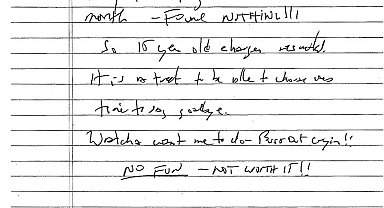 month - Found NOTHING!!!
So 15 year old charges
It is to be able to choose
time to say goodbye.
Watcha want me to do - Burst out cryin!!
NO FUN - NOT WORTH IT!!